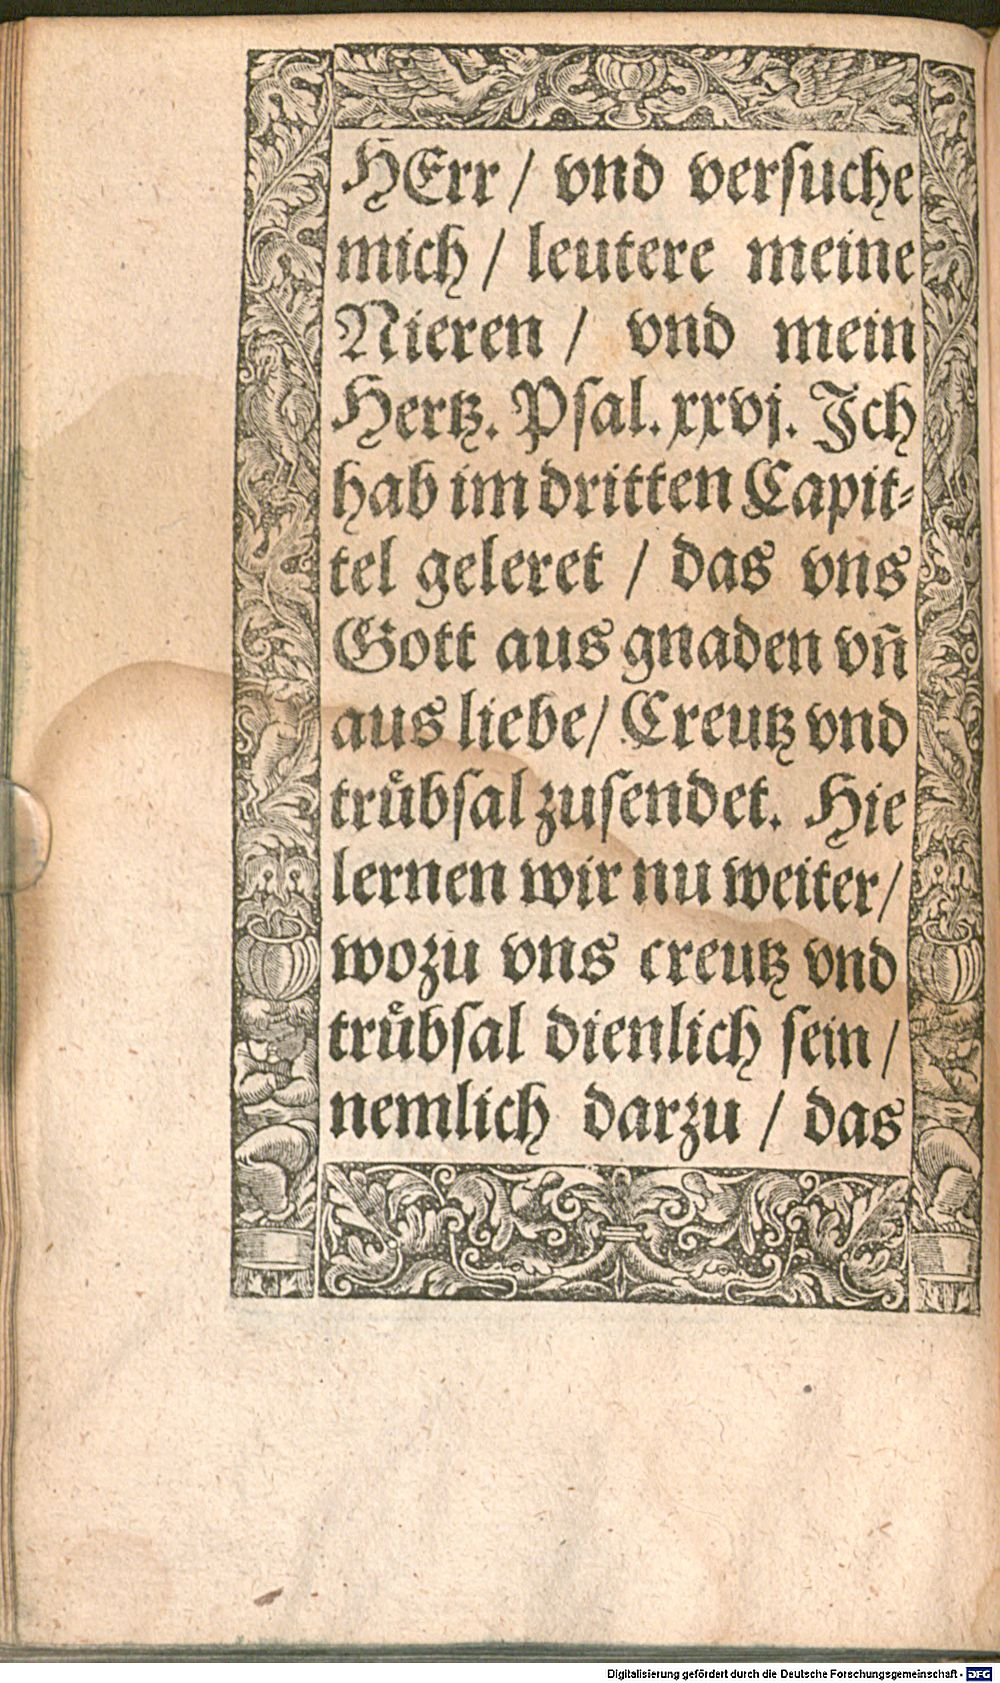 HErr / vnd verſuche
mich / leutere meine
Nieren / vnd mein
Hertz. Pſal. xxvj. Ich
hab im dritten Capit⸗
tel geleret / das vns
Gott aus gnaden vn̄
aus liebe / Creutz vnd
truͤbſal zuſendet. Hie
lernen wir nu weiter /
wozu vns creutz vnd
truͤbſal dienlich ſein /
nemlich darzu / das
Digitalisierung gefördert durch die Deutsche Forschungsgemeinschaft - DFG